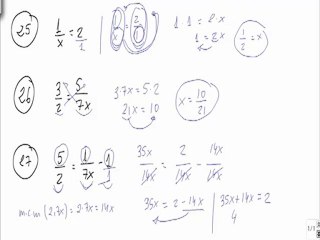 25 1/x = 2/1 | 1/x = 2/1 1·1 = 2·x
1 = 2x 1/2 = x
26 3/2 = 5/7x 3·7x = 5·2 x = 10/21
21x = 10
27 5/2 = 1/7x - 1/1 35x/14x = 2/14x - 14x/14x
m.c.m (2,7x) = 2·7x = 14x 35x = 2 - 14x | 35x + 14x = 2
4
1/1